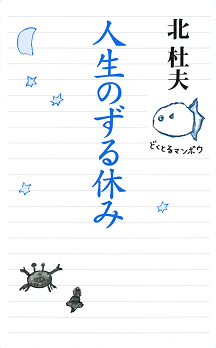 北 杜夫
どくとるマンボウ
人生のずる休み